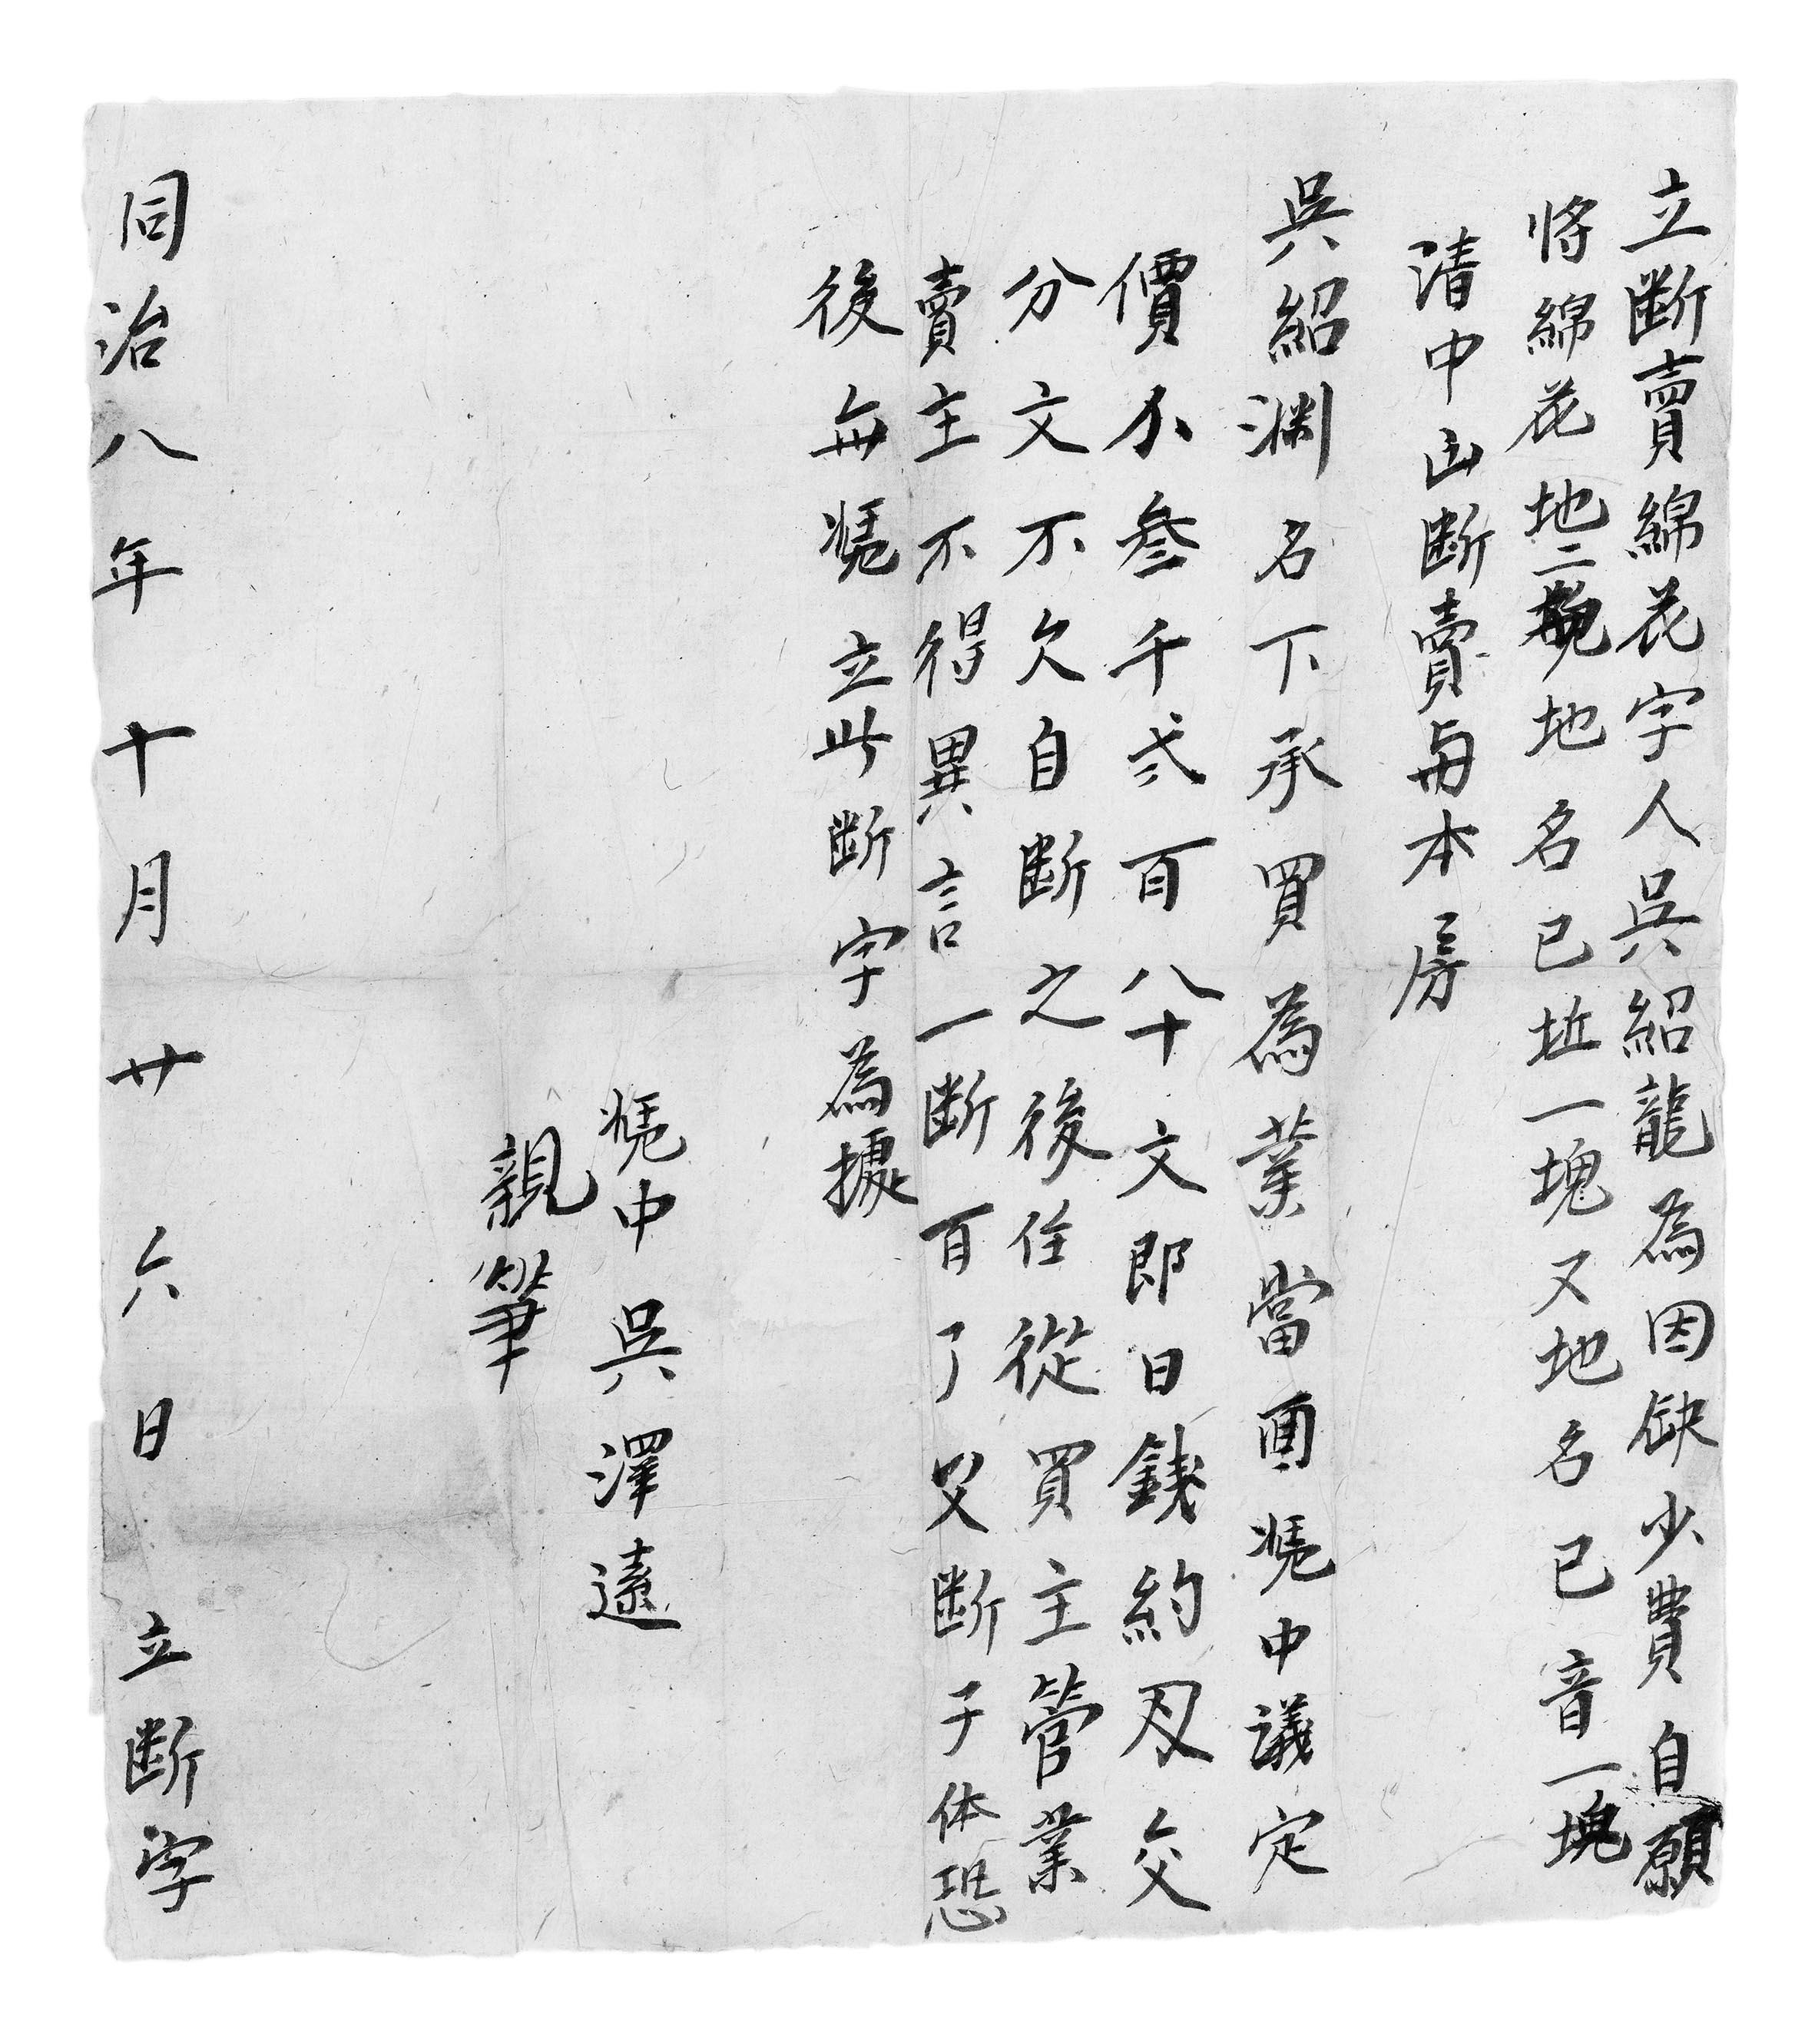 立断賣綿花字人吳紹龍為因缺少費自願
將綿花地二塊地名已坵一塊又地名已音一塊
清中山断賣与本房
吳紹渊名下承買為業當面憑中議定
價小叁千弍百八十文即日錢約刄交
分文不欠自断之後任從買主管業
賣主不得異言一断百了父断子体恐
後毎憑立此断字為據
憑中吳澤遠
親筆
同治八年十月廿六日立断字